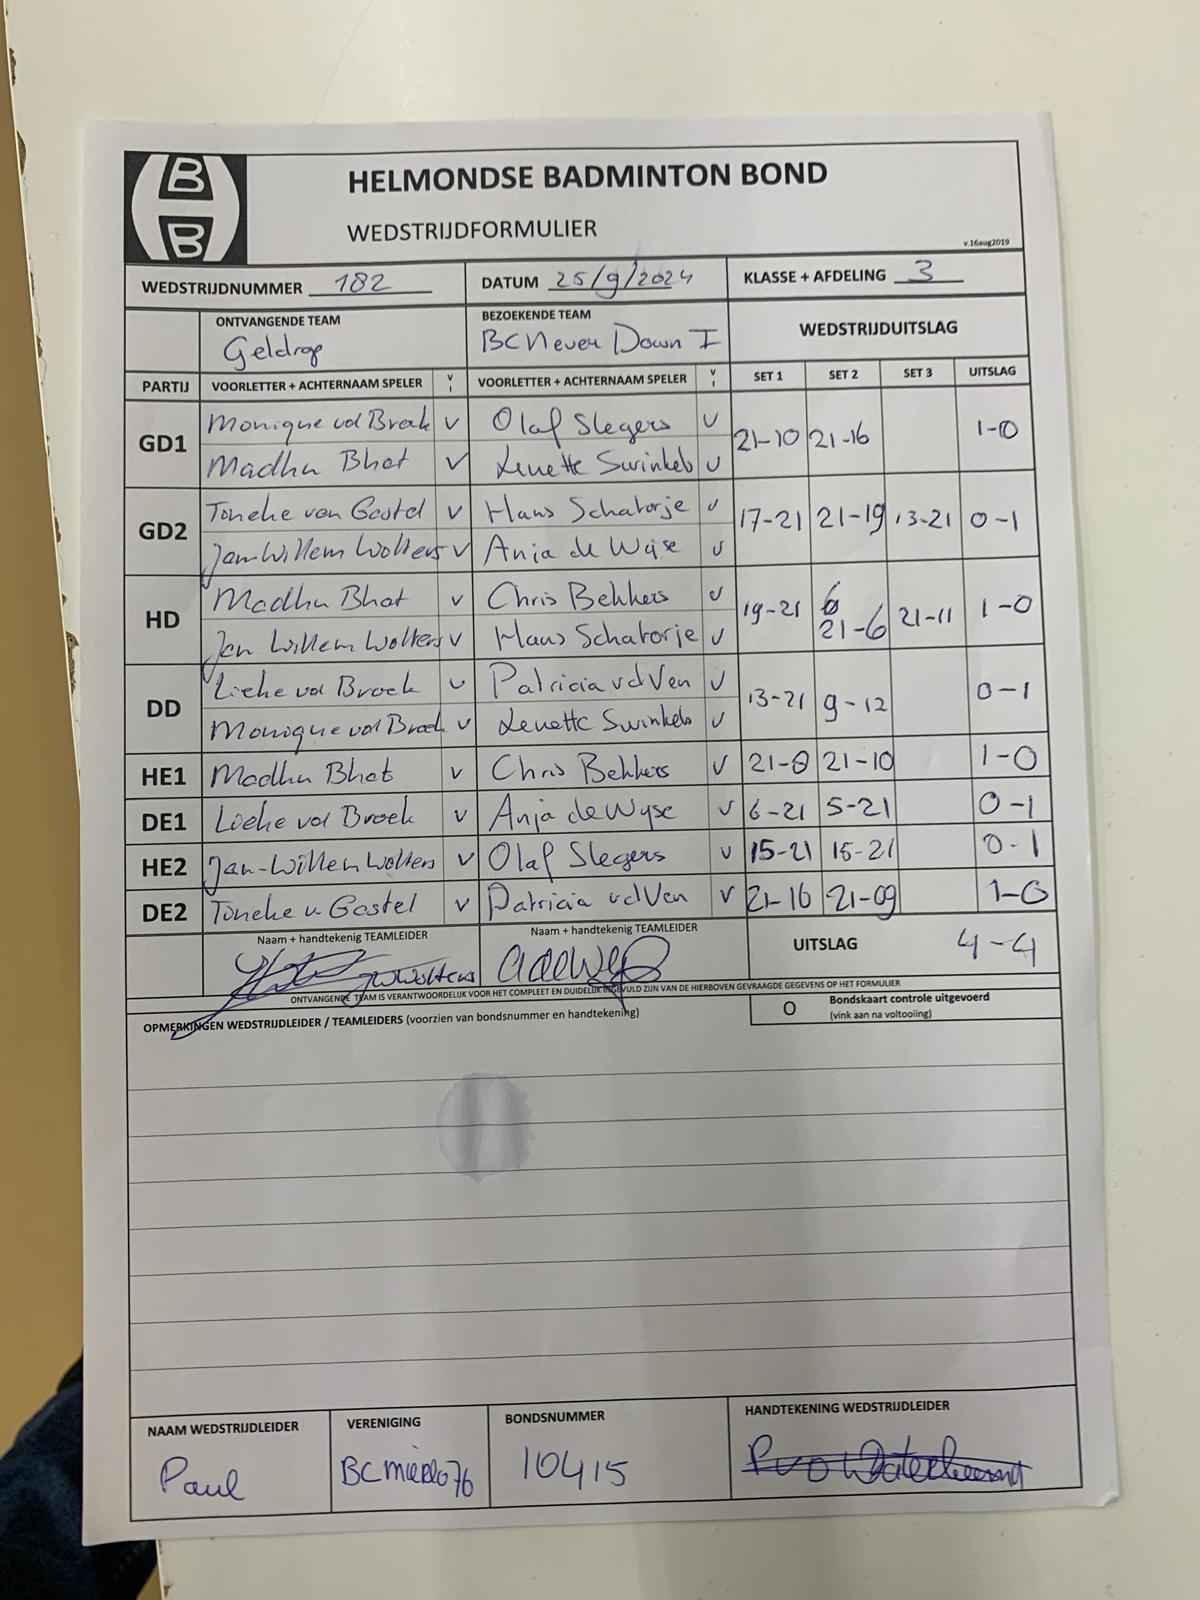 B
B
HELMONDSE BADMINTON BOND
WEDSTRIJDFORMULIER
v.16aug2019
WEDSTRIJDNUMMER 182 DATUM 25/9/2024 KLASSE + AFDELING 3
ONTVANGENDE TEAM BEZOEKENDE TEAM WEDSTRIJDUITSLAG
Geldrop BC Never Down I
PARTIJ VOORLETTER + ACHTERNAAM SPELER V I VOORLETTER + ACHTERNAAM SPELER V I SET 1 SET 2 SET 3 UITSLAG
GD1 Monique vd Broek v Olaf Slegers v 21-10 21-16 1-0
Madhu Bhat v Lenette Swinkels v
GD2 Toneke van Gastel v Hans Schatorje v 17-21 21-19 13-21 0-1
Jan Willem Wolters v Anja de Wijse v
HD Madhu Bhat v Chris Bekkers v 19-21 21-6 21-11 1-0
Jan Willem Wolters v Hans Schatorje v
DD Lieke vd Broek v Patricia vd Ven v 13-21 9-12 0-1
Monique vd Broek v Lenette Swinkels v
HE1 Madhu Bhat v Chris Bekkers v 21-8 21-10 1-0
DE1 Lieke vd Broek v Anja de Wyse v 6-21 5-21 0-1
HE2 Jan-Willem Wolters v Olaf Slegers v 15-21 15-21 0-1
DE2 Toneke v Gastel v Patricia vd Ven v 21-16 21-09 1-0
Naam + handtekenig TEAMLEIDER Naam + handtekenig TEAMLEIDER UITSLAG 4-4
JWWolters
ONTVANGENDE TEAM IS VERANTWOORDELIJK VOOR HET COMPLEET EN DUIDELIJK INGEVULD ZIJN VAN DE HIERBOVEN GEVRAAGDE GEGEVENS OP HET FORMULIER
OPMERKINGEN WEDSTRIJDLEIDER / TEAMLEIDERS (voorzien van bondsnummer en handtekening) O Bondskaart controle uitgevoerd
(vink aan na voltooiing)
NAAM WEDSTRIJDLEIDER VERENIGING BONDSNUMMER HANDTEKENING WEDSTRIJDLEIDER
Paul BC mierlo 76 10415